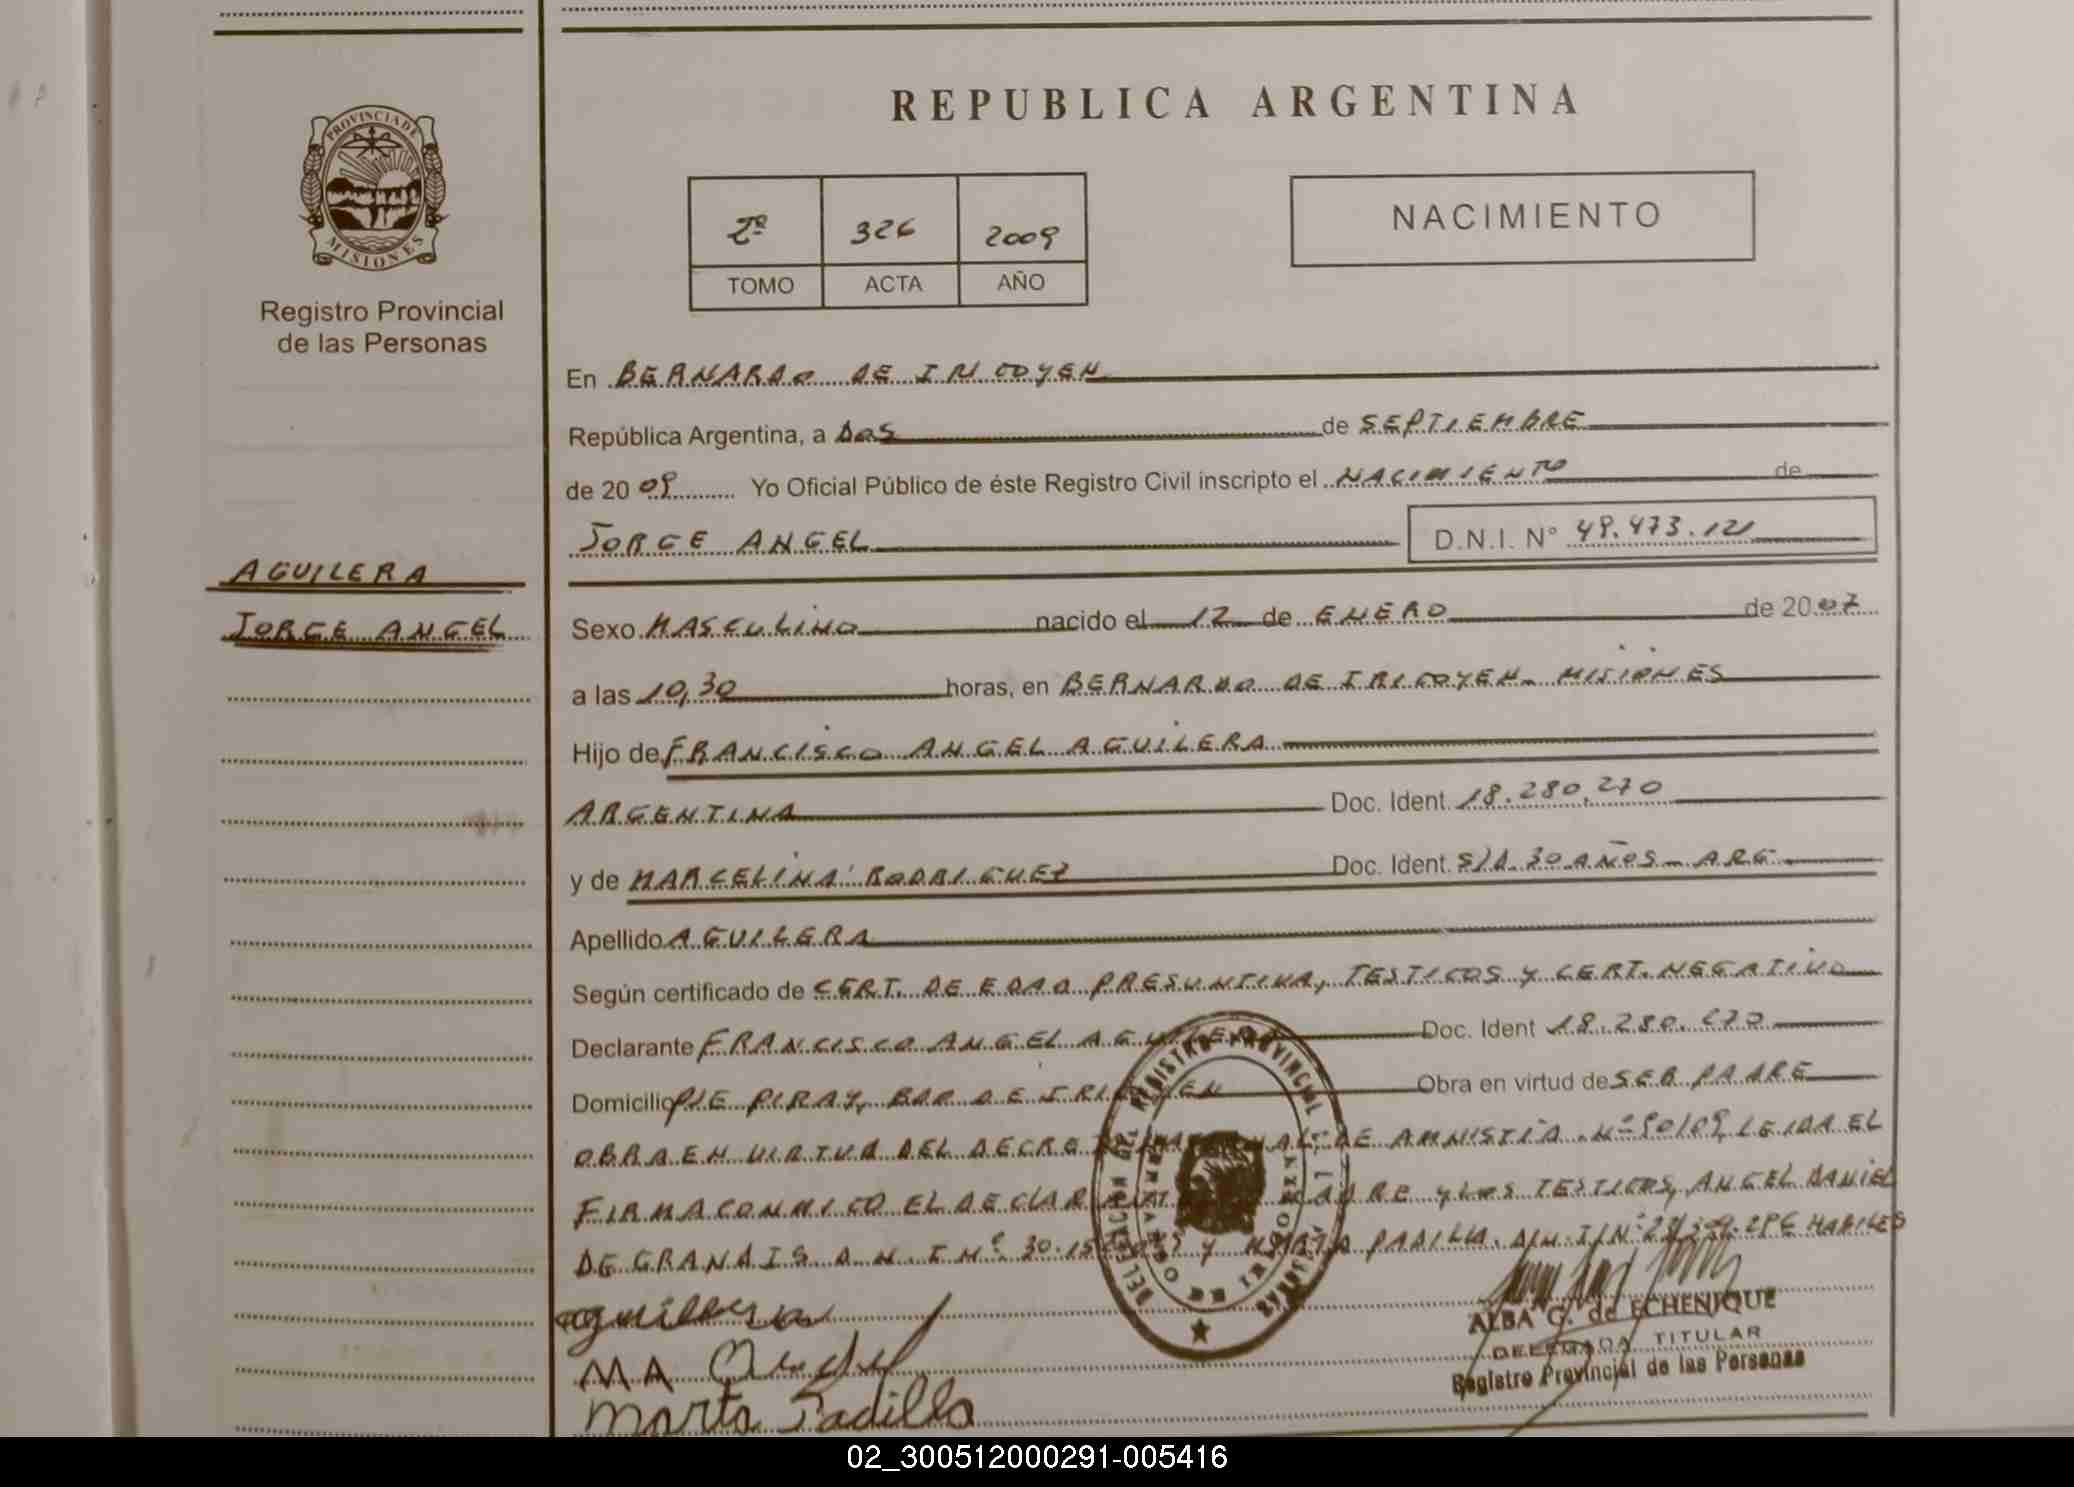 REPUBLICA ARGENTINA
PROVINCIA DE
MISIONES
Registro Provincial
de las Personas
2º 326 2009
TOMO ACTA AÑO
NACIMIENTO
En BERNARDO DE IRIGOYEN
República Argentina, a DOS de SEPTIEMBRE
de 2009 Yo Oficial Público de éste Registro Civil inscripto el NACIMIENTO de
JORGE ANGEL D.N.I. Nº 49.473.121
AGUILERA
JORGE ANGEL
Sexo MASCULINO nacido el 12 de ENERO de 2007
a las 10,30 horas, en BERNARDO DE IRIGOYEN - MISIONES
Hijo de FRANCISCO ANGEL AGUILERA
ARGENTINA Doc. Ident. 18.280.270
y de MARCELINA RODRIGUEZ Doc. Ident. S/D. 30 AÑOS - ARG.
Apellido AGUILERA
Según certificado de CERT. DE EDAD PRESUNTIVA, TESTIGOS Y CERT. NEGATIVO
Declarante FRANCISCO ANGEL AGUILERA Doc. Ident 18.280.270
Domicilio PJE PIRAY, BDO DE IRIGOYEN Obra en virtud de SER PADRE
OBRA EN VIRTUD DEL DECRETO NACIONAL DE AMNISTIA. Nº 90/09, LEIDA EL
FIRMA CONMIGO EL DECLARANTE PADRE Y LOS TESTIGOS, ANGEL DANIEL
DE GRANDIS D.N.I Nº 30.15 Y MARTA PADILLA. D.N.I Nº HABILES
DELEGACION DEL REGISTRO PROVINCIAL DE LAS PERSONAS
BERNARDO DE IRIGOYEN
aguilera
MA
Marta Padilla
ALBA G. de ECHENIQUE
DELEGADA TITULAR
Registro Provincial de las Personas
02_300512000291-005416